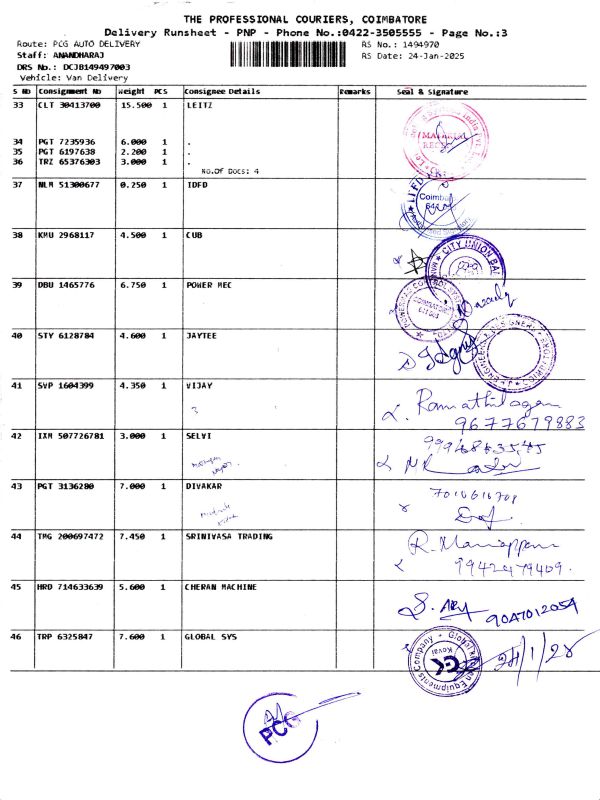 THE PROFESSIONAL COURIERS, COIMBATORE
Delivery Runsheet - PNP - Phone No.:0422-3505555 - Page No.:3
Route: PCG AUTO DELIVERY
RS No.: 1494970
Staff: ANANDHARAJ
RS Date: 24-Jan-2025
DRS No.: DCJB149497003
Vehicle: Van Delivery
S No Consignment No Weight PCS Consignee Details Remarks Seal & Signature
33 CLT 30413700 15.500 1 LEITZ
34 PGT 7235936 6.000 1 .
35 PGT 6197638 2.200 1 .
36 TRZ 65376303 3.000 1 .
No.Of Docs: 4
37 NLM 51300677 0.250 1 IDFD
Coimb
38 KMU 2968117 4.500 1 CUB
CITY UNION BA
39 DBU 1465776 6.750 1 POWER MEC
40 STY 6128784 4.600 1 JAYTEE
41 SVP 1604399 4.350 1 VIJAY
Ramathilagam
9677679883
42 IXM 507726781 3.000 1 SELVI
43 PGT 3136280 7.000 1 DIVAKAR
44 TMG 200697472 7.450 1 SRINIVASA TRADING
R. Mariappan
9942479409.
45 HRD 714633639 5.600 1 CHERAN MACHINE
9047012054
46 TRP 6325847 7.600 1 GLOBAL SYS
Equipments Company
Global
GK
Kovai
PCG